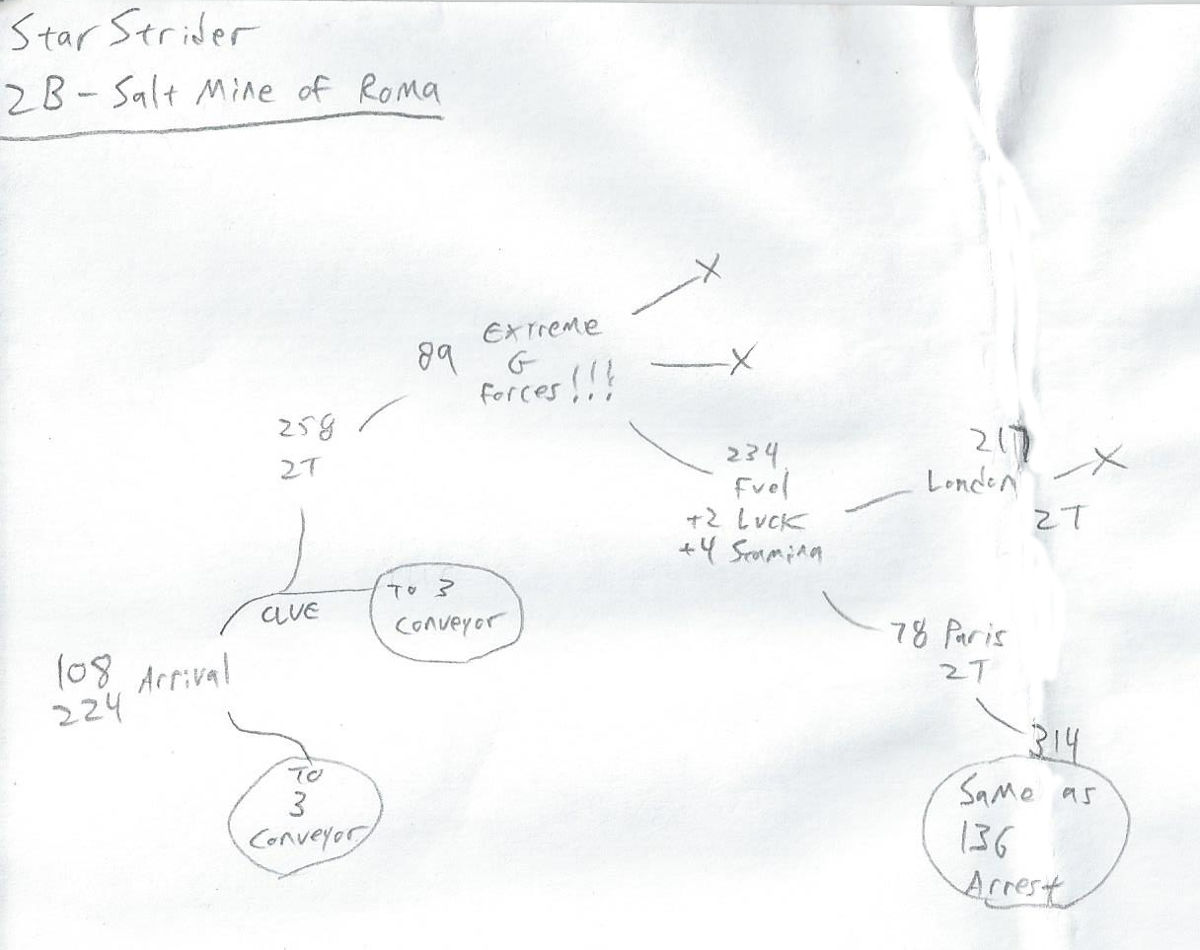 Star Strider
2B - Salt Mine of Roma
X
Extreme
89 G
Forces!!!
X
258
2T
234
Fuel
+2 Luck
+4 Stamina
London
X
2T
CLUE
To 3
Conveyor
78 Paris
2T
108 Arrival
224
314
Same as
136
Arrest
To
3
Conveyor